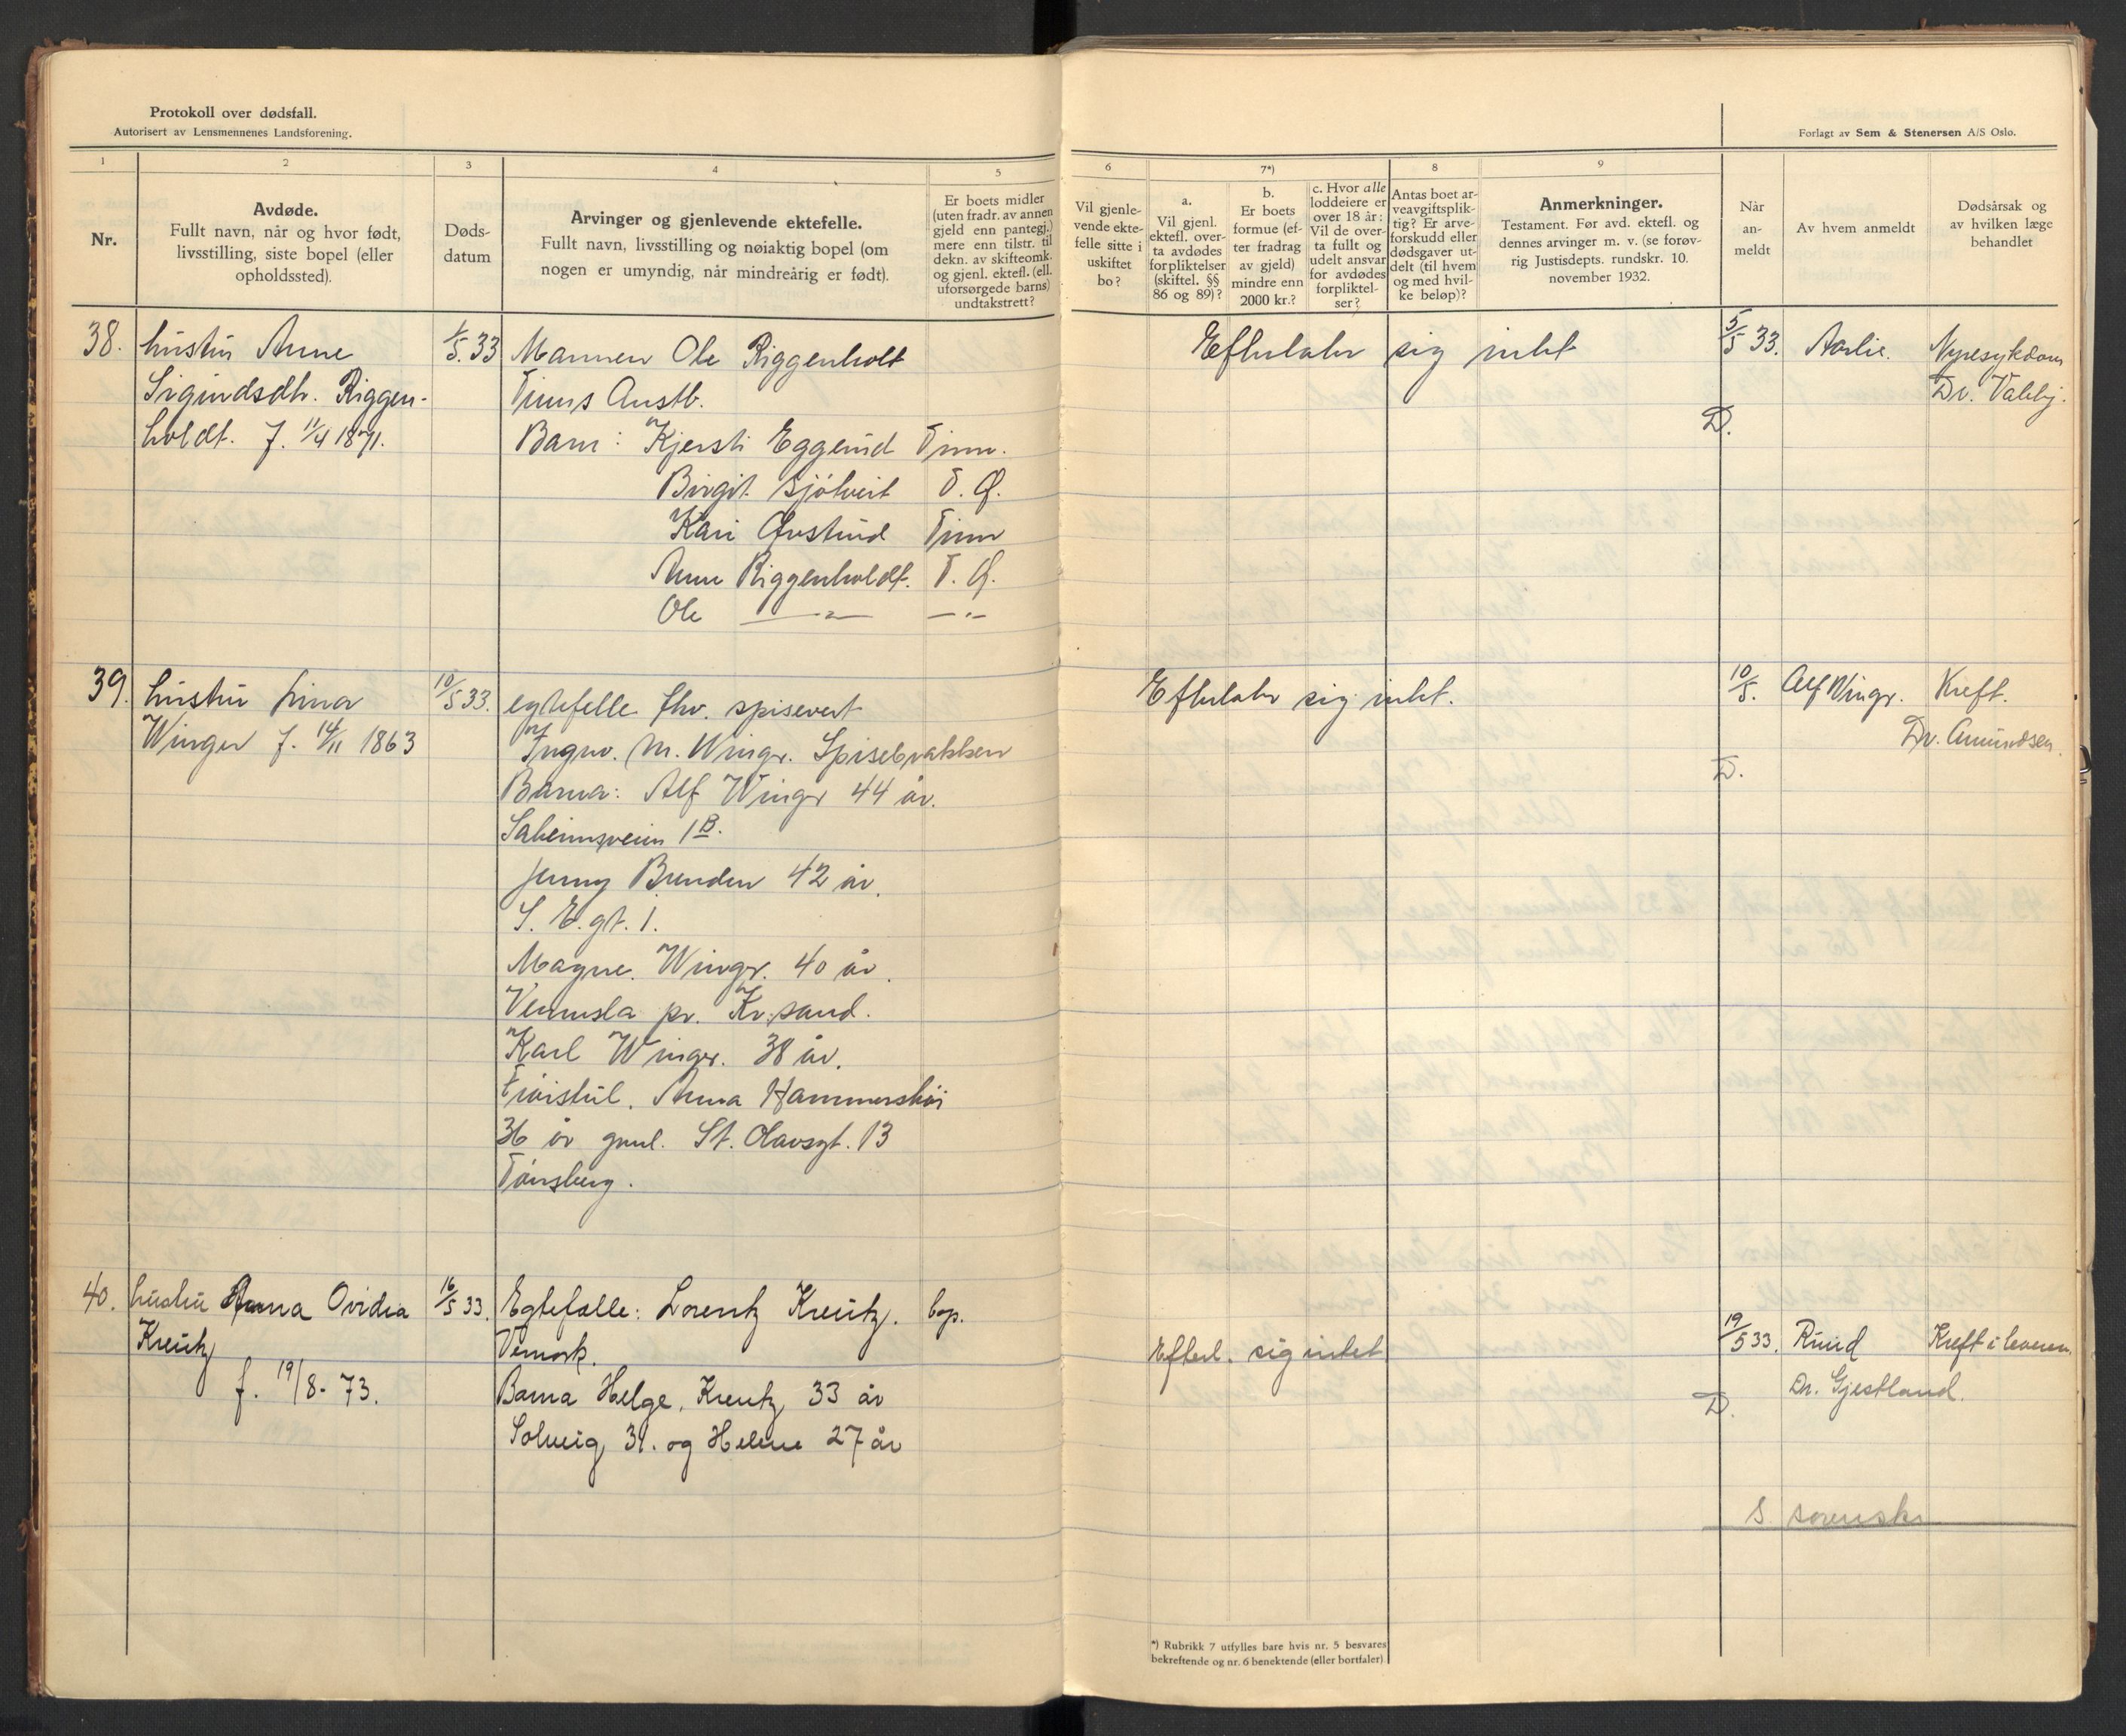 Protokoll over dødsfall.
Autorisert av Lensmennenes Landsforening.
1
2
3
4
5
Nr.
Avdøde.
Fullt navn, når og hvor født,
livsstilling, siste bopel (eller
opholdssted).
Døds-
datum
Arvinger og gjenlevende ektefelle.
Fullt navn, livsstilling og nøiaktig bopel (om
nogen er umyndig, når mindreårig er født).
Er boets midler
(uten fradr. av annen
gjeld enn pantegj.)
mere enn tilstr. til
dekn. av skifteomk.
og gjenl. ektefl. (ell.
uforsørgede barns)
undtakstrett?
38.
hustru Anne
Sigurdsdtr. Riggen-
holdt. f. 11/4 1871.
1/5. 33
Mannen Ole Riggenholt
Tinns Austb.
Barn: Kjersti Eggerud Tinn.
Birgit Sjøtveit T. A.
Kari Ørstud Tinn
Anne Riggenholdt. T. A.
Ole — " — — " —
39.
hustru Lina
Winger f. 14/11 1863
10/5 33.
egtefelle fhv. spisevert
Ingv. M. Wingr. Spisebrakken
Barna: Alf Wingr 44 år.
Saheimsveien 1B.
Jenny Brenden 42 år.
S. E. gt. 1.
Magne Wingr. 40 år.
Vennsla pr. Kr.sand.
Karl Wingr. 38 år.
Frøistul. Anna Hammershøi
36 år gml. St. Olavsgt. 13
Tønsberg.
40.
hustru Anna Ovidia
Kreutz
f. 19/8 - 73.
16/5 33.
Egtefælle: Lorentz Kreutz. bop.
Vemork.
Barna Helge, Kreutz, 33 år
Solveig 31. og Helene 27 år
Forlagt av Sem & Stenersen A/S Oslo.
6
7*)
8
9
Vil gjenle-
vende ekte-
felle sitte i
uskiftet
bo?
a.
Vil gjenl.
ektefl. over-
ta avdødes
forpliktelser
(skiftel. §§
86 og 89)?
b.
Er boets
formue (ef-
ter fradrag
av gjeld)
mindre enn
2000 kr.?
c. Hvor alle
loddeiere er
over 18 år:
Vil de over-
ta fullt og
udelt ansvar
for avdødes
forpliktel-
ser?
Antas boet ar-
veavgiftsplik-
tig? Er arve-
forskudd eller
dødsgaver ut-
delt (til hvem
og med hvil-
ke beløp)?
Anmerkninger.
Testament. Før avd. ektefl. og
dennes arvinger m. v. (se forøv-
rig Justisdepts. rundskr. 10.
november 1932.
Når
an-
meldt
Av hvem anmeldt
Dødsårsak og
av hvilken læge
behandlet
Efterlater sig intet
5/5 33.
Aarlie.
Nyresykdom
Dr. Valeby.
D.
Efterlater sig intet.
10/5.
Alf Wingr.
Kreft.
Dr. Amundsen.
D.
Efterl. sig intet
19/5 33.
Ruud
Kreft i leveren.
Dr. Gjestland.
D.
*) Rubrikk 7 utfylles bare hvis nr. 5 besvares
bekreftende og nr. 6 benektende (eller bortfaler)